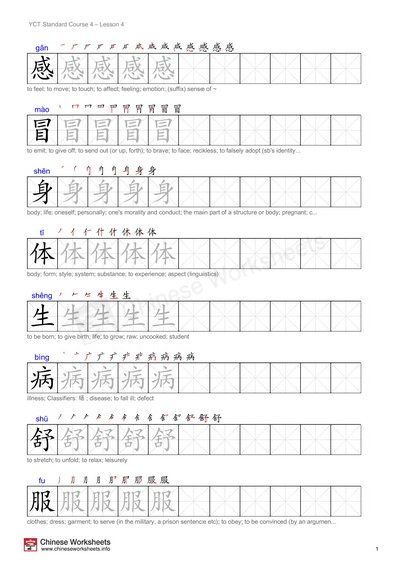 YCT Standard Course 4 – Lesson 4
gǎn
感 感 感 感 感
to feel; to move; to touch; to affect; feeling; emotion; (suffix) sense of ~
mào
冒 冒 冒 冒 冒
to emit; to give off; to send out (or up, forth); to brave; to face; reckless; to falsely adopt (sb's identity...
shēn
身 身 身 身 身
body; life; oneself; personally; one's morality and conduct; the main part of a structure or body; pregnant; c...
tǐ
体 体 体 体 体
body; form; style; system; substance; to experience; aspect (linguistics)
shēng
生 生 生 生 生
to be born; to give birth; life; to grow; raw; uncooked; student
bìng
病 病 病 病 病
illness; Classifiers: 场; disease; to fall ill; defect
shū
舒 舒 舒 舒 舒
to stretch; to unfold; to relax; leisurely
fu
服 服 服 服 服
clothes; dress; garment; to serve (in the military, a prison sentence etc); to obey; to be convinced (by an argumen...
Chinese Worksheets
Chinese Worksheets
www.chineseworksheets.info
1